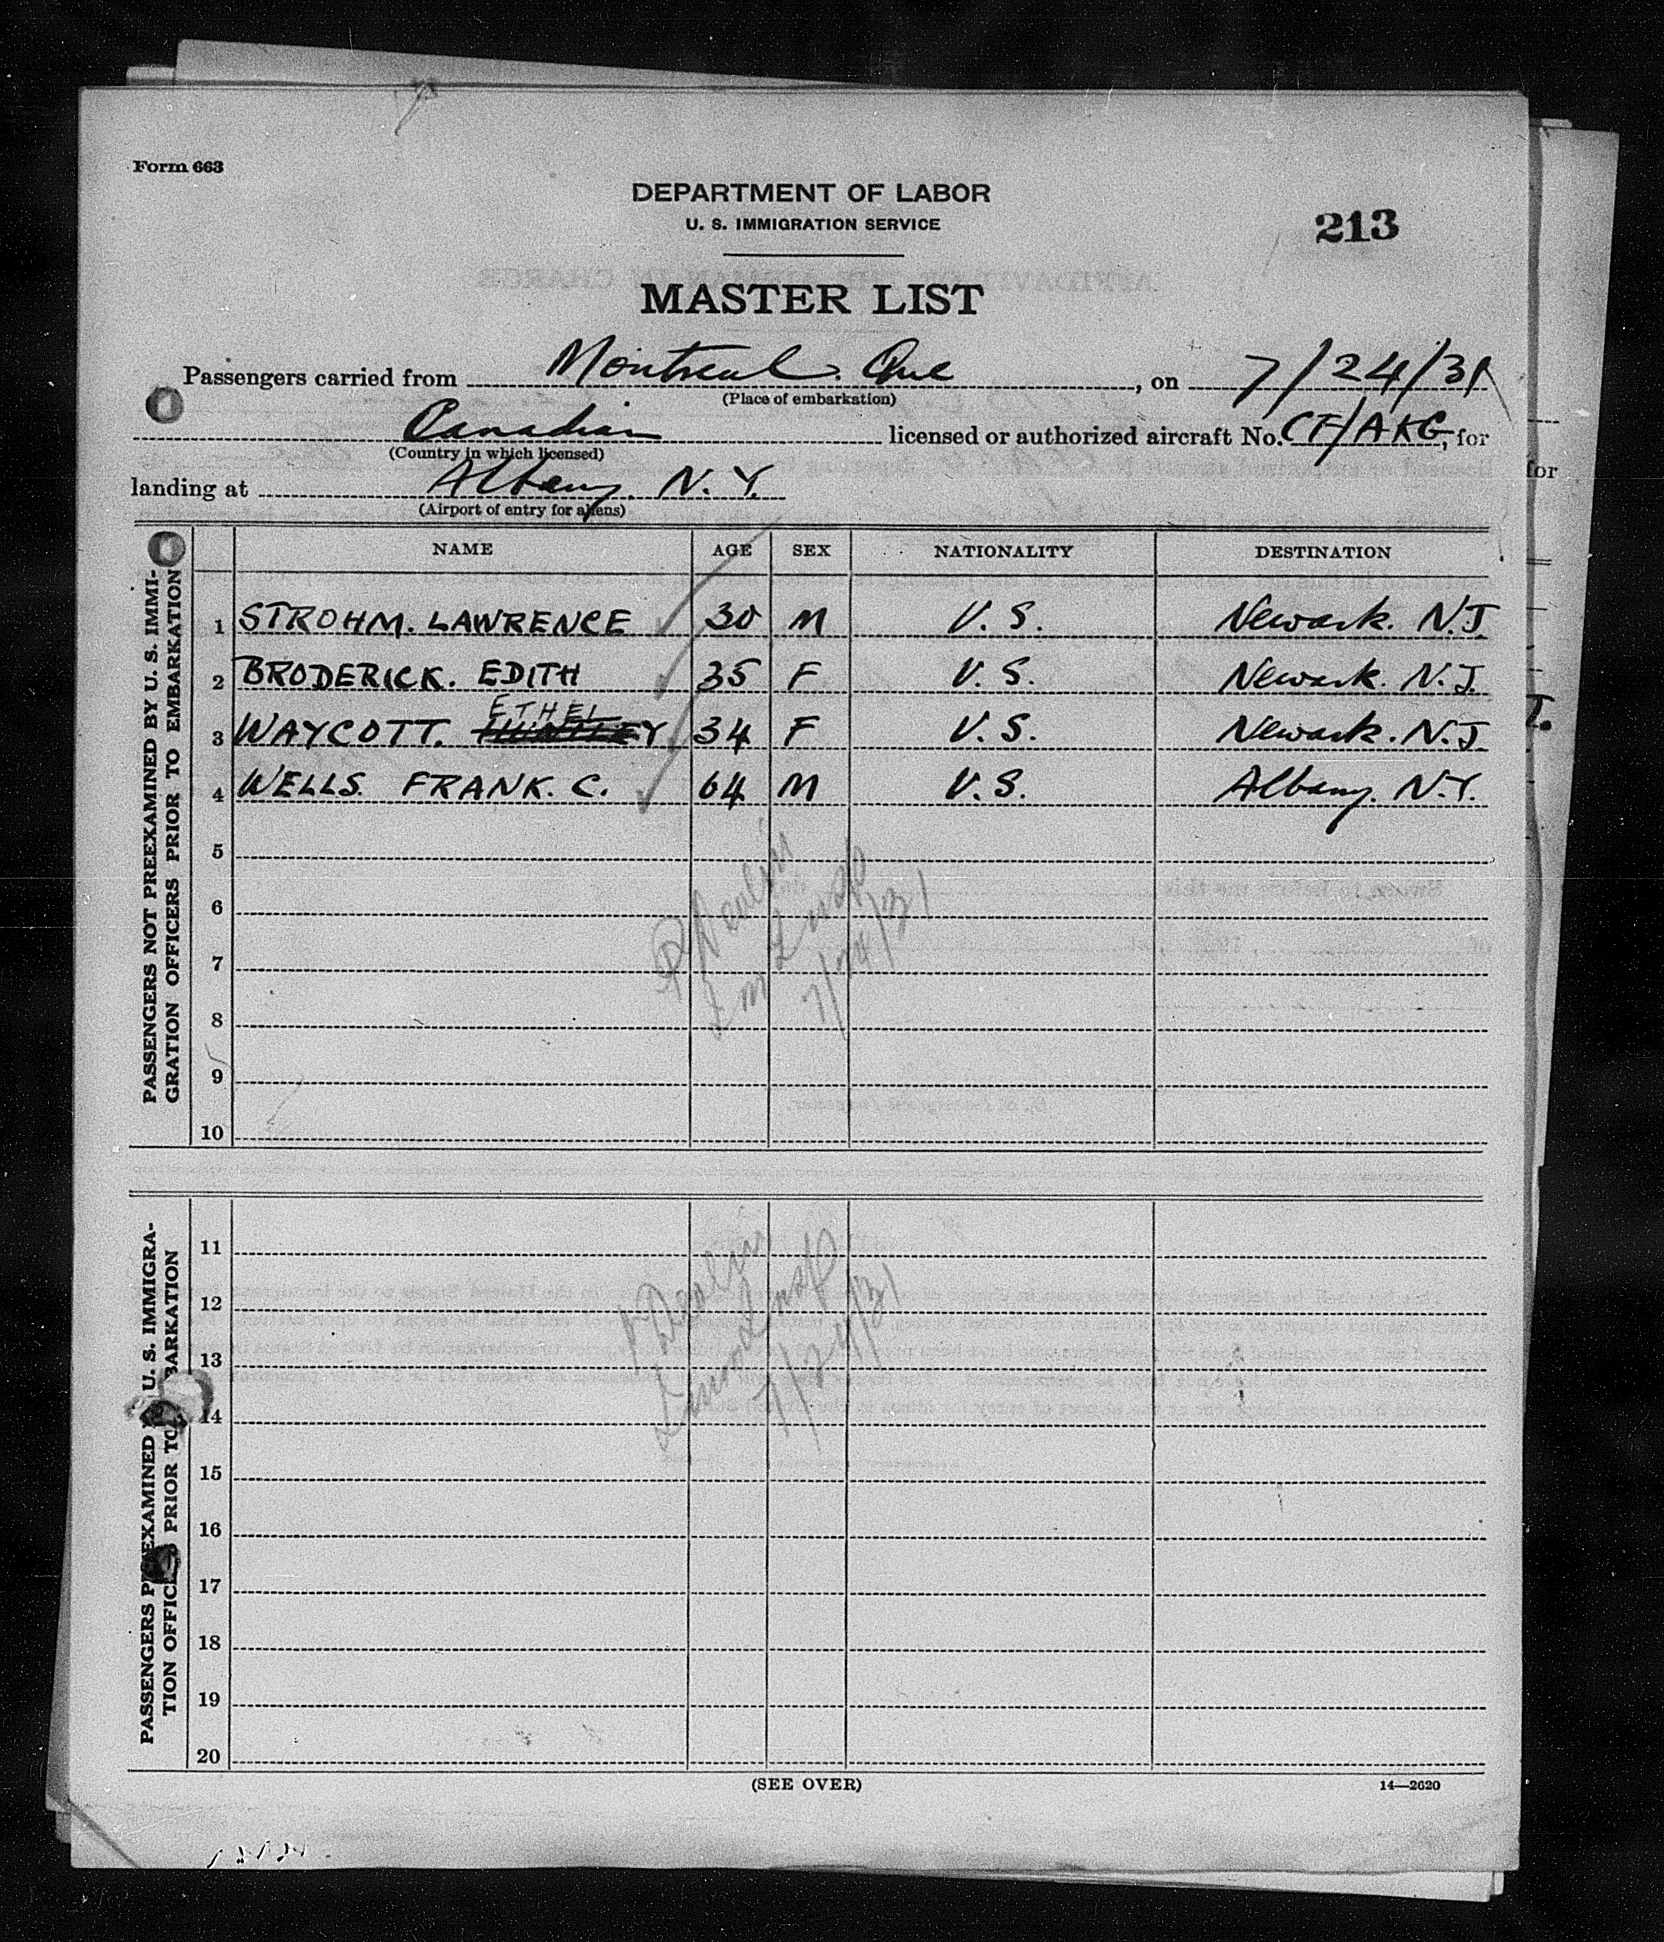 Form 663
DEPARTMENT OF LABOR
U. S. IMMIGRATION SERVICE
213
MASTER LIST
Passengers carried from Montreal. Que, on 7/24/31
(Place of embarkation)
Canadian licensed or authorized aircraft No. CF/AKG, for
(Country in which licensed)
landing at Albany. N.Y.
(Airport of entry for aliens)
for
NAME AGE SEX NATIONALITY DESTINATION
PASSENGERS NOT PREEXAMINED BY U. S. IMMI-
GRATION OFFICERS PRIOR TO EMBARKATION
1 STROHM. LAWRENCE 30 M U.S. Newark. N.J.
2 BRODERICK. EDITH 35 F U.S. Newark. N.J.
ETHEL
3 WAYCOTT. HUNTLEY 34 F U.S. Newark. N.J.
4 WELLS. FRANK. C. 64 M U.S. Albany. N.Y.
5
6
7
8
9
10
7/24/31
PASSENGERS PREEXAMINED U. S. IMMIGRA-
TION OFFICERS PRIOR TO EMBARKATION
11
12
13
14
15
16
17
18
19
20
7/24/31
(SEE OVER)
14—2620